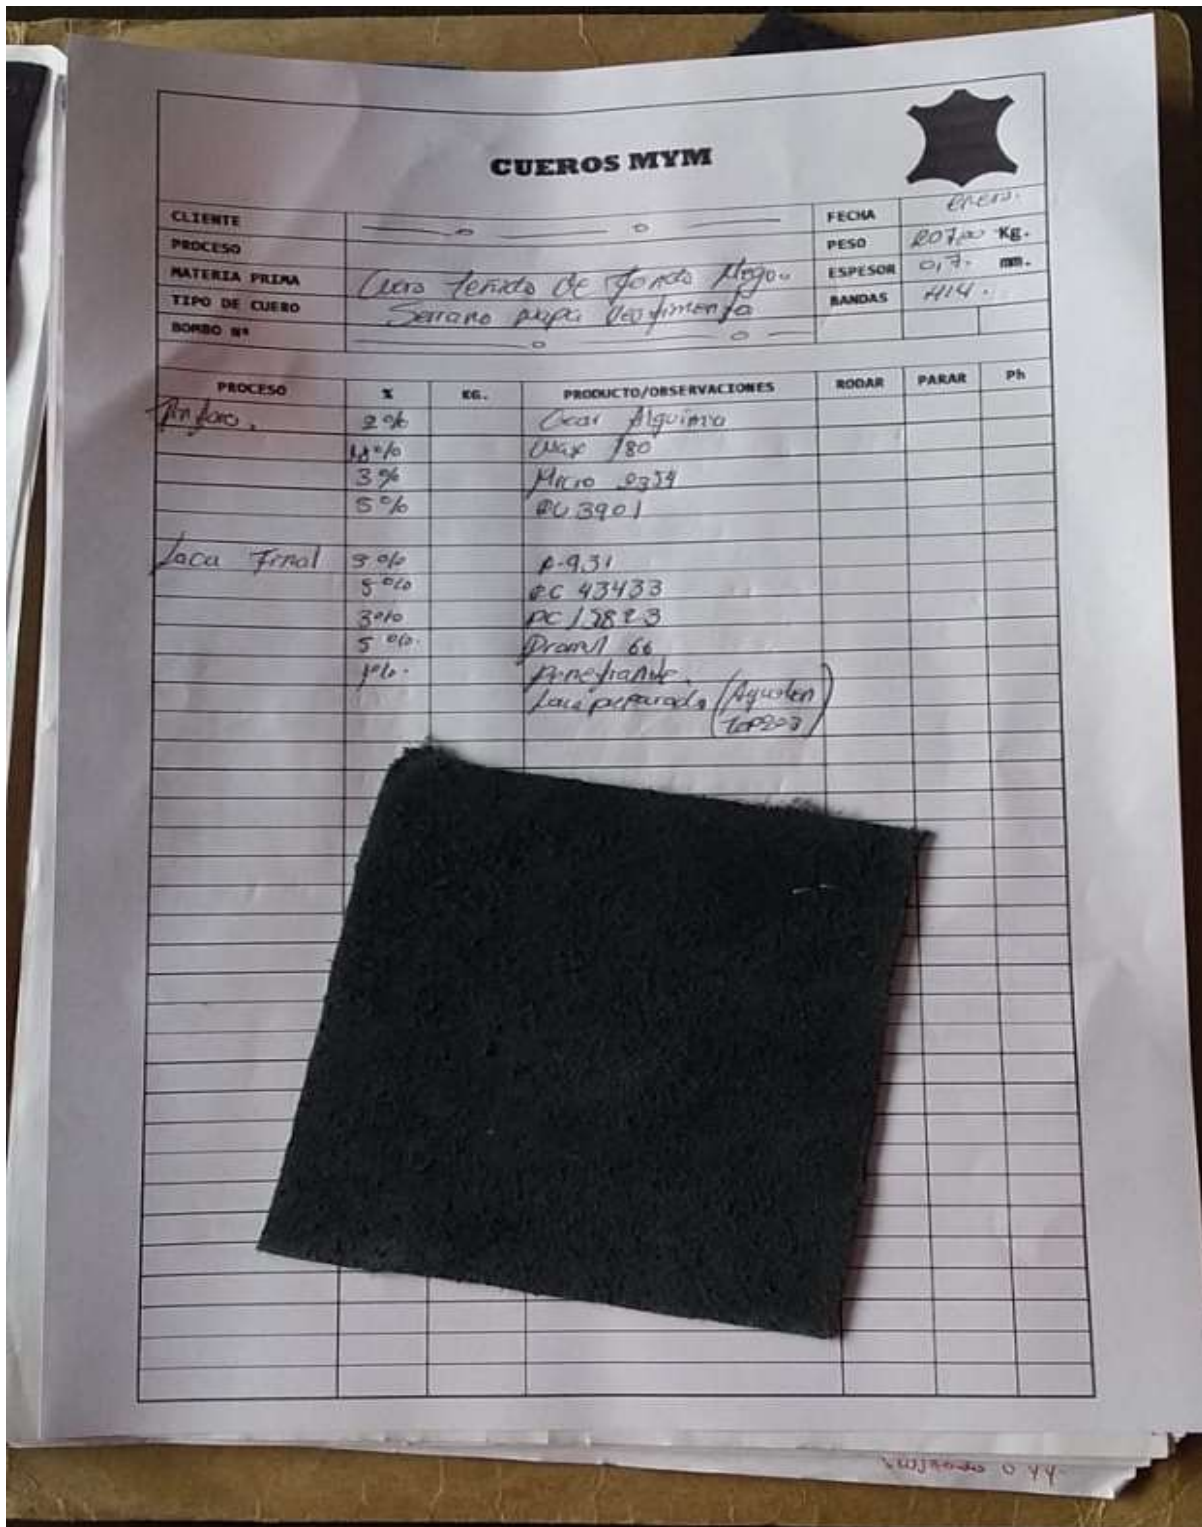 CUEROS MYM
CLIENTE FECHA enero.
PROCESO PESO 207,00 Kg.
MATERIA PRIMA Cuero teñido de fondo Negro. ESPESOR 0,7. mm.
TIPO DE CUERO Serrano papa Vestimenta BANDAS H14.
BOMBO Nº
PROCESO % KG. PRODUCTO/OBSERVACIONES RODAR PARAR Ph
2% Alquimia
Wax 180
3% Micro
5% PU 3901
Laca Final 5% A-931
5% PC 43433
3% PC 15823
5% 66
1%. Penetrante.
Laca preparada (Aqualen
TOP203)